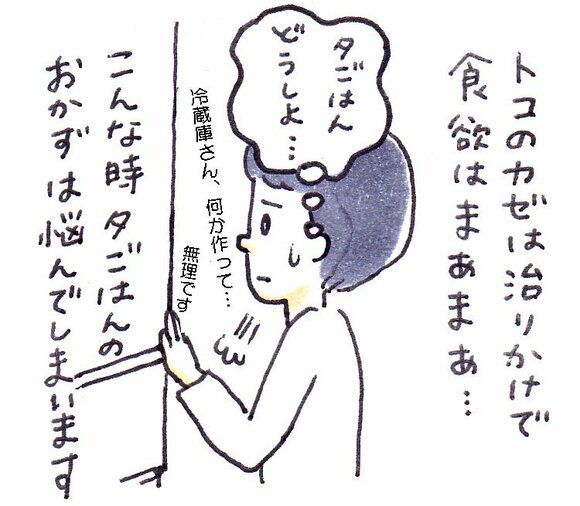 トコのカゼは治りかけで
食欲はまあまぁ…
夕ごはん
どうしよ…
冷蔵庫さん、何か作って…
無理です
こんな時夕ごはんの
おかずは悩んでしまいます